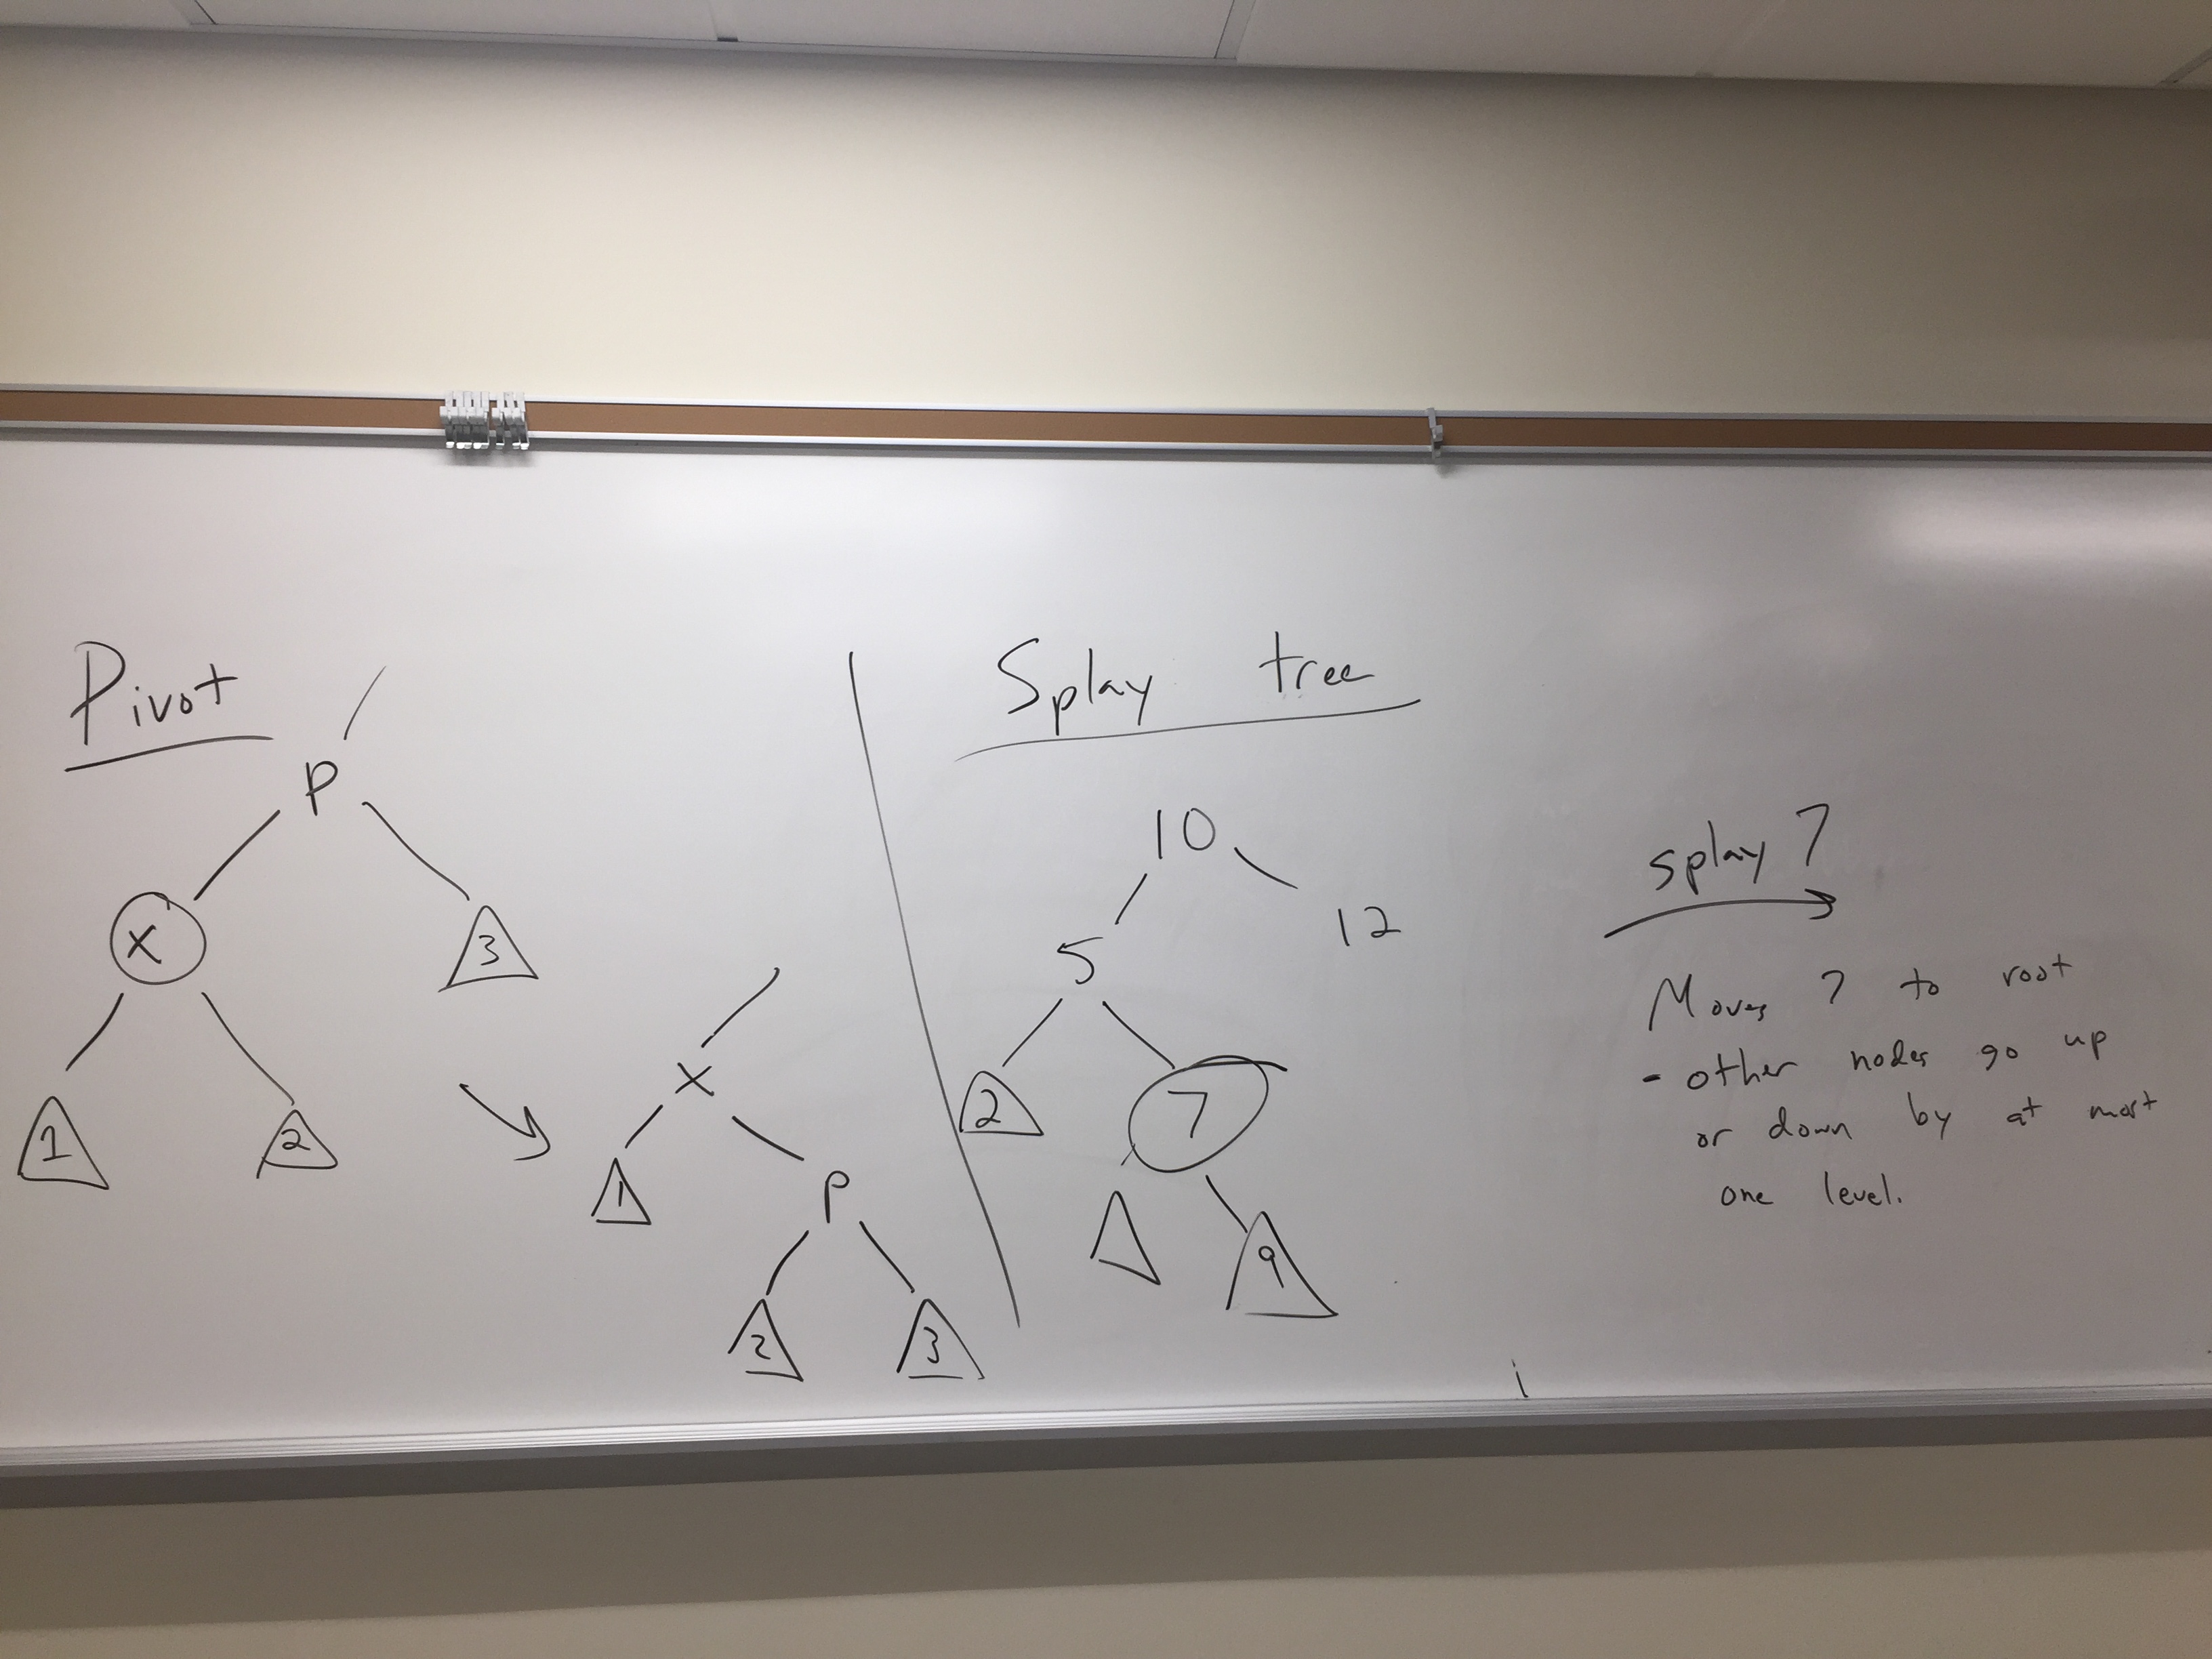 Pivot
P
X
3
1
2
X
1
P
2
3
Splay tree
10
5
12
2
7
9
splay 7
Moves 7 to root
- other nodes go up
or down by at most
one level.